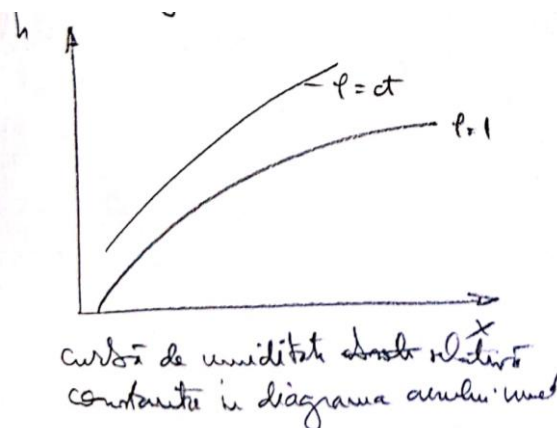 h
φ = ct
φ=1
x
curbă de umiditate relativă
constanta in diagrama aerului umed